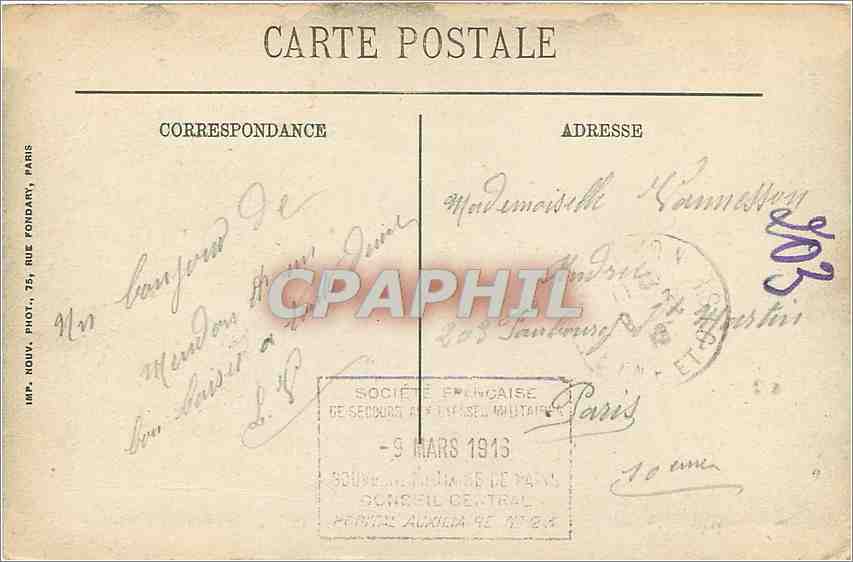 CARTE POSTALE
CORRESPONDANCE
ADRESSE
IMP. NOUV. PHOT., 75, RUE FONDARY, PARIS
Un bonjour de
Meudon
bon baiser a
L. P
Mademoiselle Vannesson
203 Faubourg St Martin
Paris
10 eme
203
SOCIÉTÉ FRANÇAISE
DE SECOURS AUX BLESSÉS MILITAIRES
-9 MARS 1916
DE PARIS
CONSEIL CENTRAL
HOPITAL AUXILIAIRE No
CPAPHIL